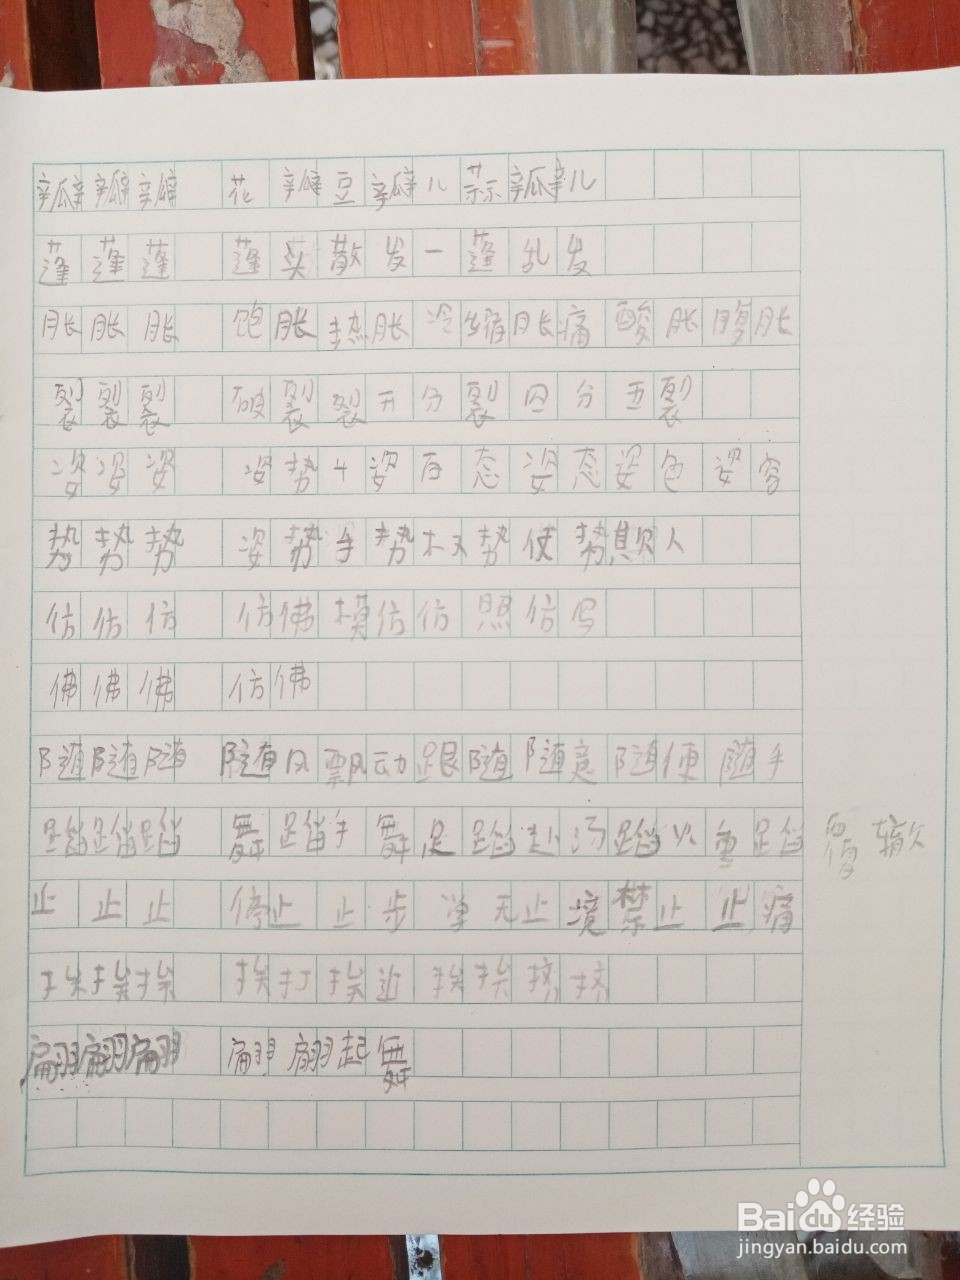 瓣瓣瓣 花瓣豆瓣儿蒜瓣儿
蓬蓬蓬 蓬头散发一蓬乱发
胀胀胀 饱胀热胀冷缩胀痛酸胀腹胀
裂裂裂 破裂裂开分裂四分五裂
姿姿姿 姿势千姿百态姿态姿色姿容
势势势 姿势手势权势仗势欺人
仿仿仿 仿佛模仿仿照仿写
佛佛佛 仿佛
随随随 随风飘动跟随随意随便随手
蹈蹈蹈 舞蹈手舞足蹈赴汤蹈火重蹈覆辙
止止止 停止止步学无止境禁止止痛
挨挨挨 挨打挨近挨挨挤挤
翩翩翩 翩翩起舞
Baidu经验
jingyan.baidu.com